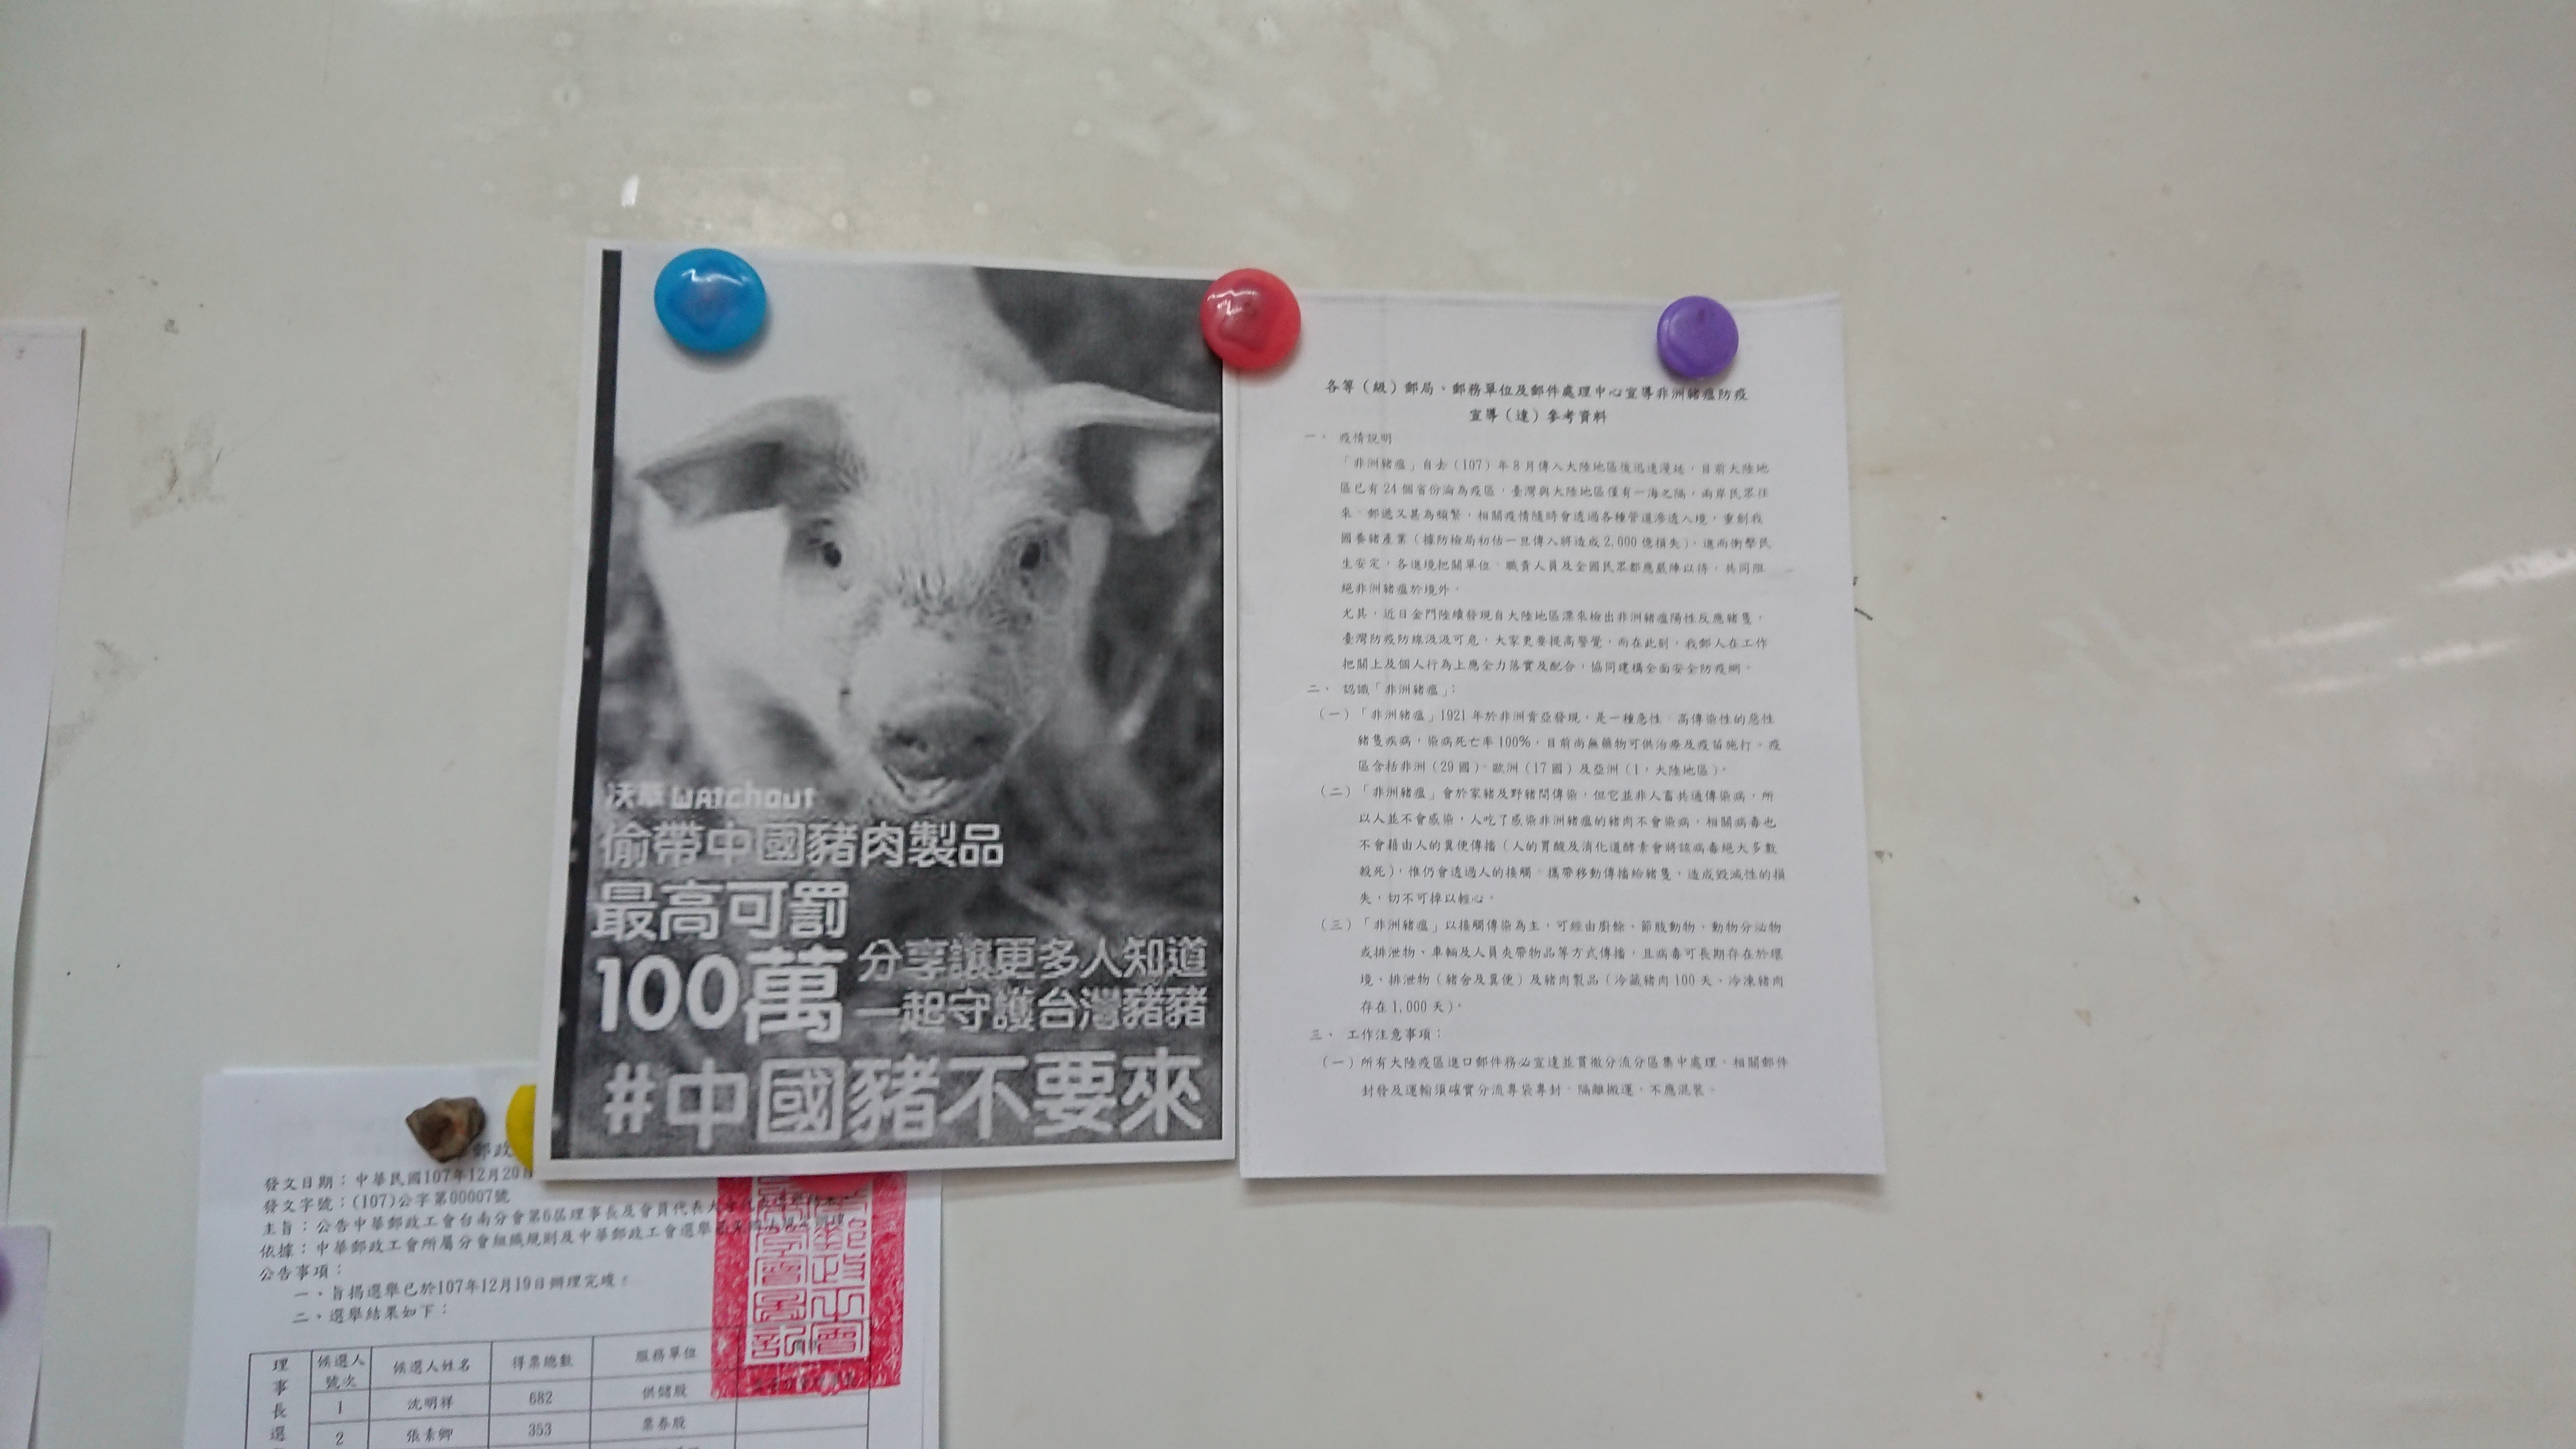 沃草 watchout
偷帶中國豬肉製品
最高可罰
100萬
分享讓更多人知道
一起守護台灣豬豬
#中國豬不要來
各等（級）郵局、郵務單位及郵件處理中心宣導非洲豬瘟防疫
宣導（達）參考資料
一、 疫情說明
「非洲豬瘟」自去（107）年8月傳入大陸地區後迅速漫延，目前大陸地
區已有24個省份淪為疫區，臺灣與大陸地區僅有一海之隔，兩岸民眾往
來、郵遞又甚為頻繁，相關疫情隨時會透過各種管道滲透入境，重創我
國養豬產業（據防檢局初估一旦傳入將造成2,000億損失），進而衝擊民
生安定，各邊境把關單位、職責人員及全國民眾都應嚴陣以待，共同阻
絕非洲豬瘟於境外。
尤其，近日金門陸續發現自大陸地區漂來檢出非洲豬瘟陽性反應豬隻，
臺灣防疫防線汲汲可危，大家更要提高警覺，而在此刻，我郵人在工作
把關上及個人行為上應全力落實及配合，協同建構全面安全防疫網。
二、 認識「非洲豬瘟」：
（一）「非洲豬瘟」1921年於非洲肯亞發現，是一種急性、高傳染性的惡性
豬隻疾病，染病死亡率100%，目前尚無藥物可供治療及疫苗施打。疫
區含括非洲（29國）、歐洲（17國）及亞洲（1，大陸地區）。
（二）「非洲豬瘟」會於家豬及野豬間傳染，但它並非人畜共通傳染病，所
以人並不會感染，人吃了感染非洲豬瘟的豬肉不會染病，相關病毒也
不會藉由人的糞便傳播（人的胃酸及消化道酵素會將該病毒絕大多數
殺死），惟仍會透過人的接觸、攜帶移動傳播給豬隻，造成毀滅性的損
失，切不可掉以輕心。
（三）「非洲豬瘟」以接觸傳染為主，可經由廚餘、節肢動物、動物分泌物
或排泄物、車輛及人員夾帶物品等方式傳播，且病毒可長期存在於環
境、排泄物（豬舍及糞便）及豬肉製品（冷藏豬肉100天、冷凍豬肉
存在1,000天）。
三、 工作注意事項：
（一）所有大陸疫區進口郵件務必宣達並貫徹分流分區集中處理，相關郵件
封發及運輸須確實分流專袋專封、隔離搬運，不應混裝。
郵政
發文日期：中華民國107年12月20日
發文字號：(107)公字第00007號
主旨：公告中華郵政工會台南分會第6屆理事長及會員代表大
依據：中華郵政工會所屬分會組織規則及中華郵政工會選舉
公告事項：
一、旨揭選舉已於107年12月19日辦理完竣。
二、選舉結果如下：
理事長選
候選人號次 候選人姓名 得票總數 服務單位
1 沈明祥 682 供儲股
2 張素卿 353 票券股